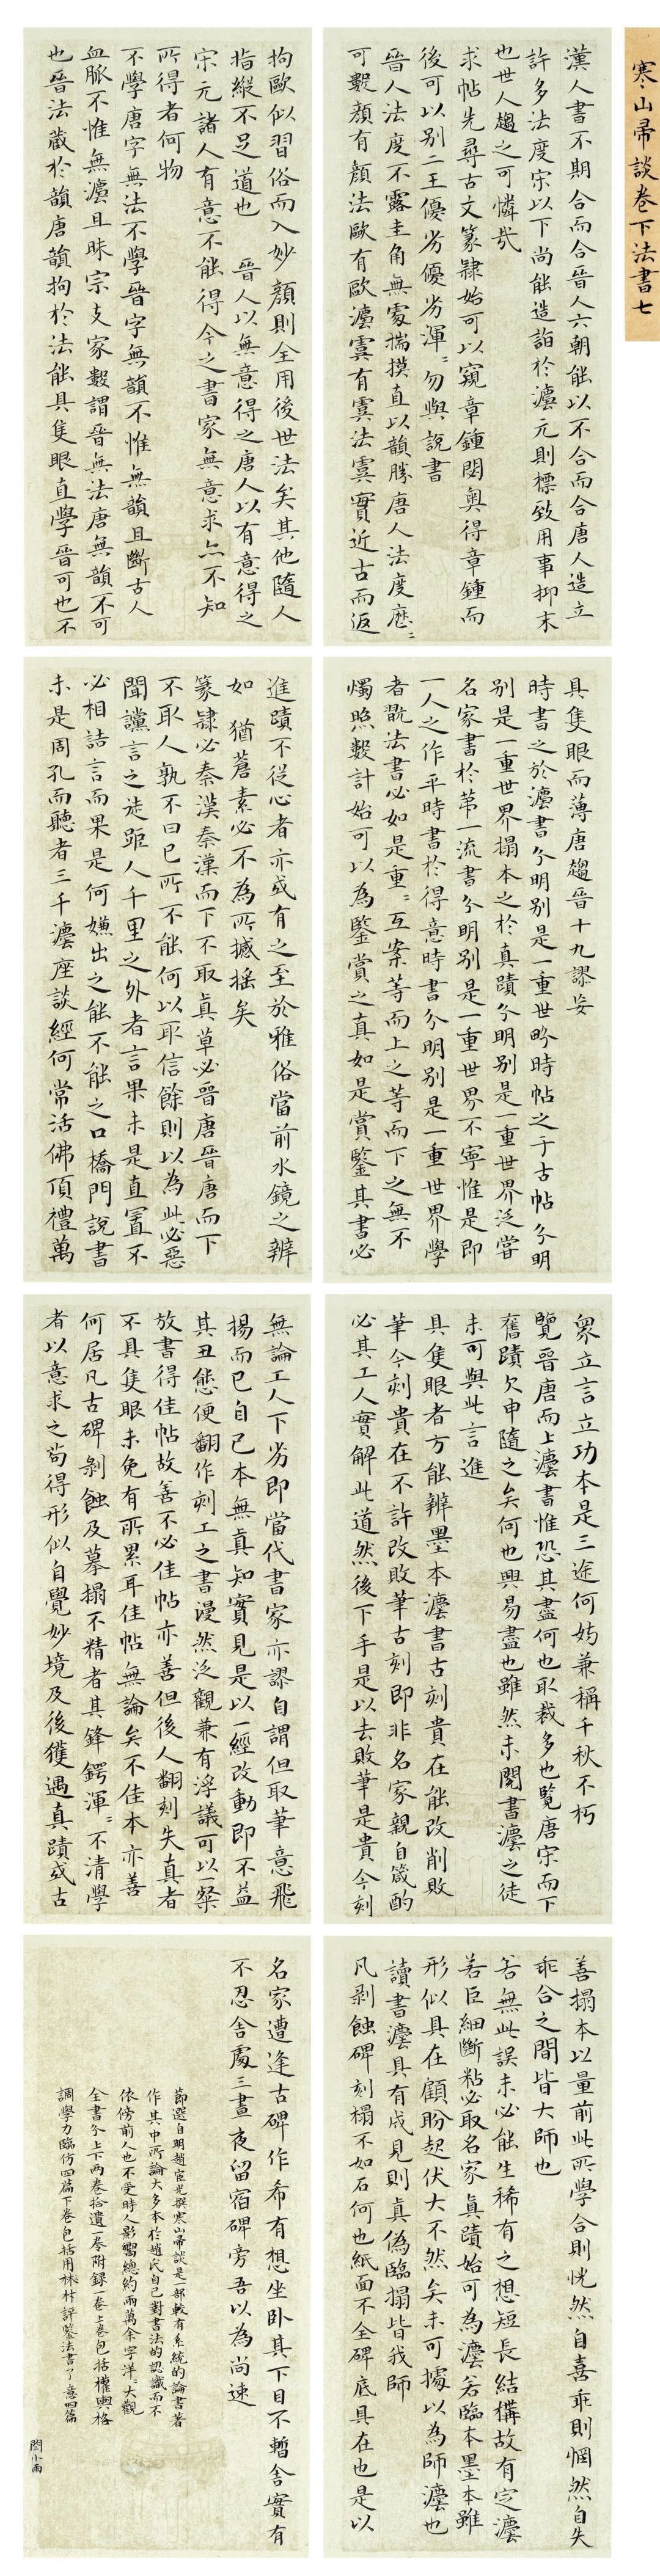 寒山帚談卷下法書七
漢人書不期合而合晉人六朝能以不合而合唐人造立
許多法度宋以下尚能造詣於灋元則標致用事抑末
也世人趨之可憐哉
求帖先尋古文篆隸始可以窺章鍾閫奧得章鍾而
後可以別二王優劣優劣渾〻勿與說書
晉人法度不露圭角無處揣摸直以韻勝唐人法度歷〻
可數顏有顏法歐有歐灋虞有虞法虞實近古而返
拘歐似習俗而入妙顏則全用後世法矣其他隨人
指縱不足道也 晉人以無意得之唐人以有意得之
宋元諸人有意不能得今之書家無意求亦不知
所得者何物
不學唐字無法不學晉字無韻不惟無韻且斷古人
血脈不惟無灋且昧宗支家數謂晉無法唐無韻不可
也晉法藏於韻唐韻拘於法能具隻眼直學晉可也不
具隻眼而薄唐趨晉十九謬妄
時書之於灋書分明別是一重世界時帖之于古帖分明
別是一重世界搨本之於真蹟分明別是一重世界泛嘗
名家書於苐一流書分明別是一重世界不寧惟是即
一人之作平時書於得意時書分明別是一重世界學
者翫法書必如是重〻互案等而上之等而下之無不
燭照數計始可以為鑒賞之真如是賞鑒其書必
進蹟不從心者亦或有之至於雅俗當前水鏡之辨
如 猶蒼素必不為所撼搖矣
篆隸必秦漢秦漢而下不取真草必晉唐晉唐而下
不取人孰不曰已所不能何以取信餘則以為此必惡
聞讜言之徒距人千里之外者言果未是直置不
必相詰言而果是何嫌出之能不能之口橋門說書
未是周孔而聽者三千灋座談經何常活佛頂禮萬
眾立言立功本是三途何妨兼稱千秋不朽
覽晉唐而上灋書惟恐其盡何也取裁多也覽唐宋而下
舊蹟欠申隨之矣何也興易盡也雖然未閱書灋之徒
未可與此言進
具隻眼者方能辨墨本灋書古刻貴在能改削敗
筆今刻貴在不許改敗筆古刻即非名家親自箴酌
必其工人實解此道然後下手是以去敗筆是貴今刻
無論工人下劣即當代書家亦謬自謂但取筆意飛
揚而已自己本無真知實見是以一經改動即不益
其丑態便翻作刻工之書漫然泛觀兼有浮議可以一粲
放書得佳帖故善不必佳帖亦善但後人翻刻失真者
不具隻眼未免有所累耳佳帖無論矣不佳本亦善
何居凡古碑剝蝕及摹搨不精者其鋒鍔渾〻不清學
者以意求之苟得形似自覺妙境及後獲遇真蹟或古
善搨本以量前此所學合則恍然自喜乖則惘然自失
乖合之間皆大師也
若無此誤未必能生稀有之想短長結構故有定灋
若巨細斷粘必取名家真蹟始可為灋若臨本墨本雖
形似具在顧盼起伏大不然矣未可據以為師灋也
讀書灋具有成見則真偽臨搨皆我師
凡剝蝕碑刻榻不如石何也紙面不全碑底具在也是以
名家遭逢古碑作希有想坐卧其下目不暫舍實有
不忍舍處三晝夜留宿碑旁吾以為尚速
節選自明趙宧光撰寒山帚談是一部較有系統的論書著
作其中所論大多本於趙氏自己對書法的認識而不
依傍前人也不受時人影響總約兩萬余字洋〻大觀
全書分上下兩卷拾遺一卷附錄一卷上卷包括權輿格
調學力臨仿四篇下卷包括用材評鑒法書了意四篇
閻小雨